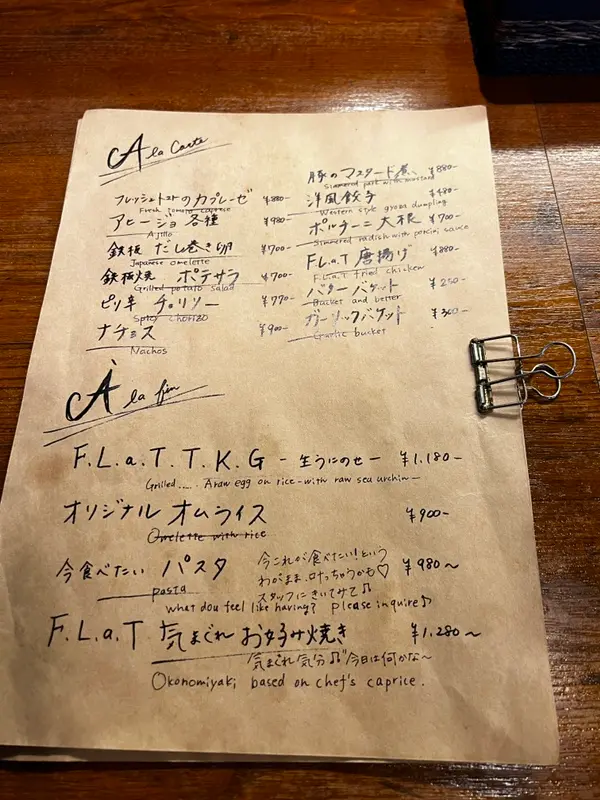 À la Carte
フレッシュトマトのカプレーゼ ¥880-
Fresh tomato caprese
アヒージョ 各種 ¥980-
Ajillo
鉄板 だし巻き卵 ¥700-
Japanese omelette
鉄板焼 ポテサラ ¥700-
Grilled potato salad
ピリ辛 チョリソー ¥770-
Spicy chorizo
ナチョス ¥900-
Nachos
豚のマスタード煮 ¥880-
Simmered pork with mustard
洋風餃子 ¥480-
Western style gyoza dumpling
ポルチーニ大根 ¥700-
Simmered radish with porcini sauce
F.L.a.T 唐揚げ ¥880-
F.L.a.T fried chicken
バターバゲット ¥250-
Bucket and better
ガーリックバゲット ¥300-
Garlic bucket
À la fin
F.L.a.T.T.K.G -生うにのせ- ¥1,180-
Grilled..... A raw egg on rice -with raw sea urchin-
オリジナル オムライス ¥900-
Omelette with rice
今食べたい パスタ ¥980~
pasta
今これが食べたい!という
わがまま、叶っちゃうかも♡
スタッフにきいてみて♫
what dou feel like having? please inquire♪
F.L.a.T 気まぐれ お好み焼き ¥1,280~
気まぐれ気分♫"今日は何かな~
Okonomiyaki based on chef's caprice.